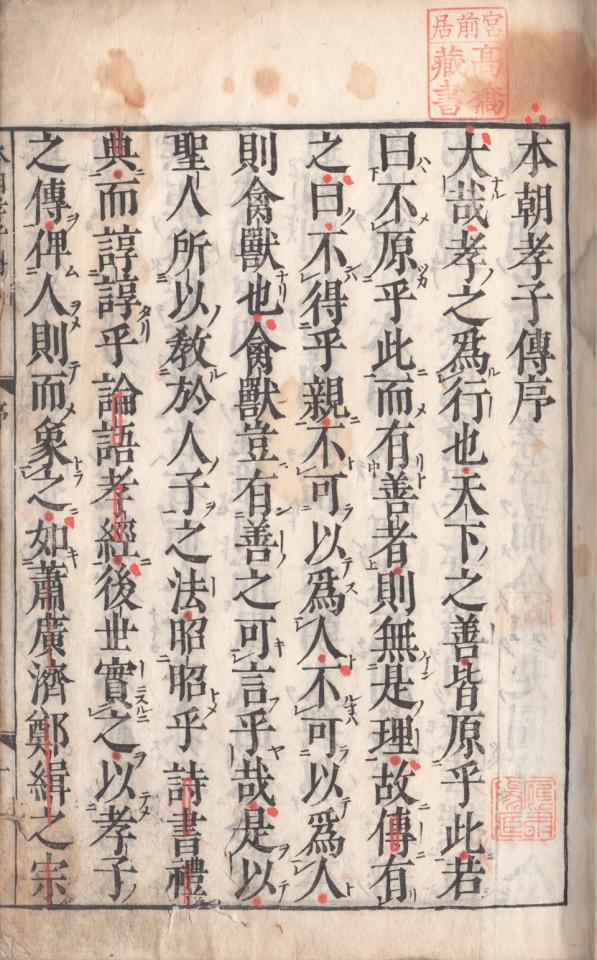 本朝孝子傳序
大哉孝之爲行也天下之善皆原乎此若
曰不原乎此而有善者則無是理故傳有
之曰不得乎親不可以爲人不可以爲人
則禽獸也禽獸豈有善之可言乎哉是以
聖人所以敎於人子之法昭昭乎詩書禮
典而諄諄乎論語孝經後世實之以孝子
之傳俾人則而象之如蕭廣濟鄭緝之宗
宮前居
高橋
藏書